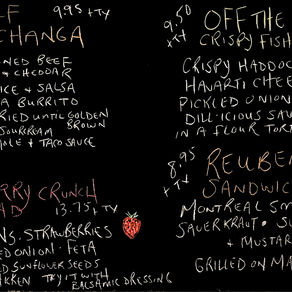 F 9.95 + TX
CHANGA
NED BEEF
& CHEDDAR
ICE & SALSA
A BURRITO
RIED UNTIL GOLDEN
BROWN
SOURCREAM
OLE & TACO SAUCE
RRY CRUNCH
AD 13.75 + TX
NS. STRAWBERRIES
ED ONION. FETA
D SUNFLOWER SEEDS
ICKEN TRY IT WITH
BALSAMIC DRESSING
9.50 OFF THE
+ TX CRISPY FISH
CRISPY HADDOC
HAVARTI CHEE
PICKLED ONION
DILL-ICIOUS SAU
IN A FLOUR TORT
8.95 REUBE
+ TX SANDWIC
MONTREAL SM
SAUERKRAUT. SW
& MUSTAR
GRILLED ON MA